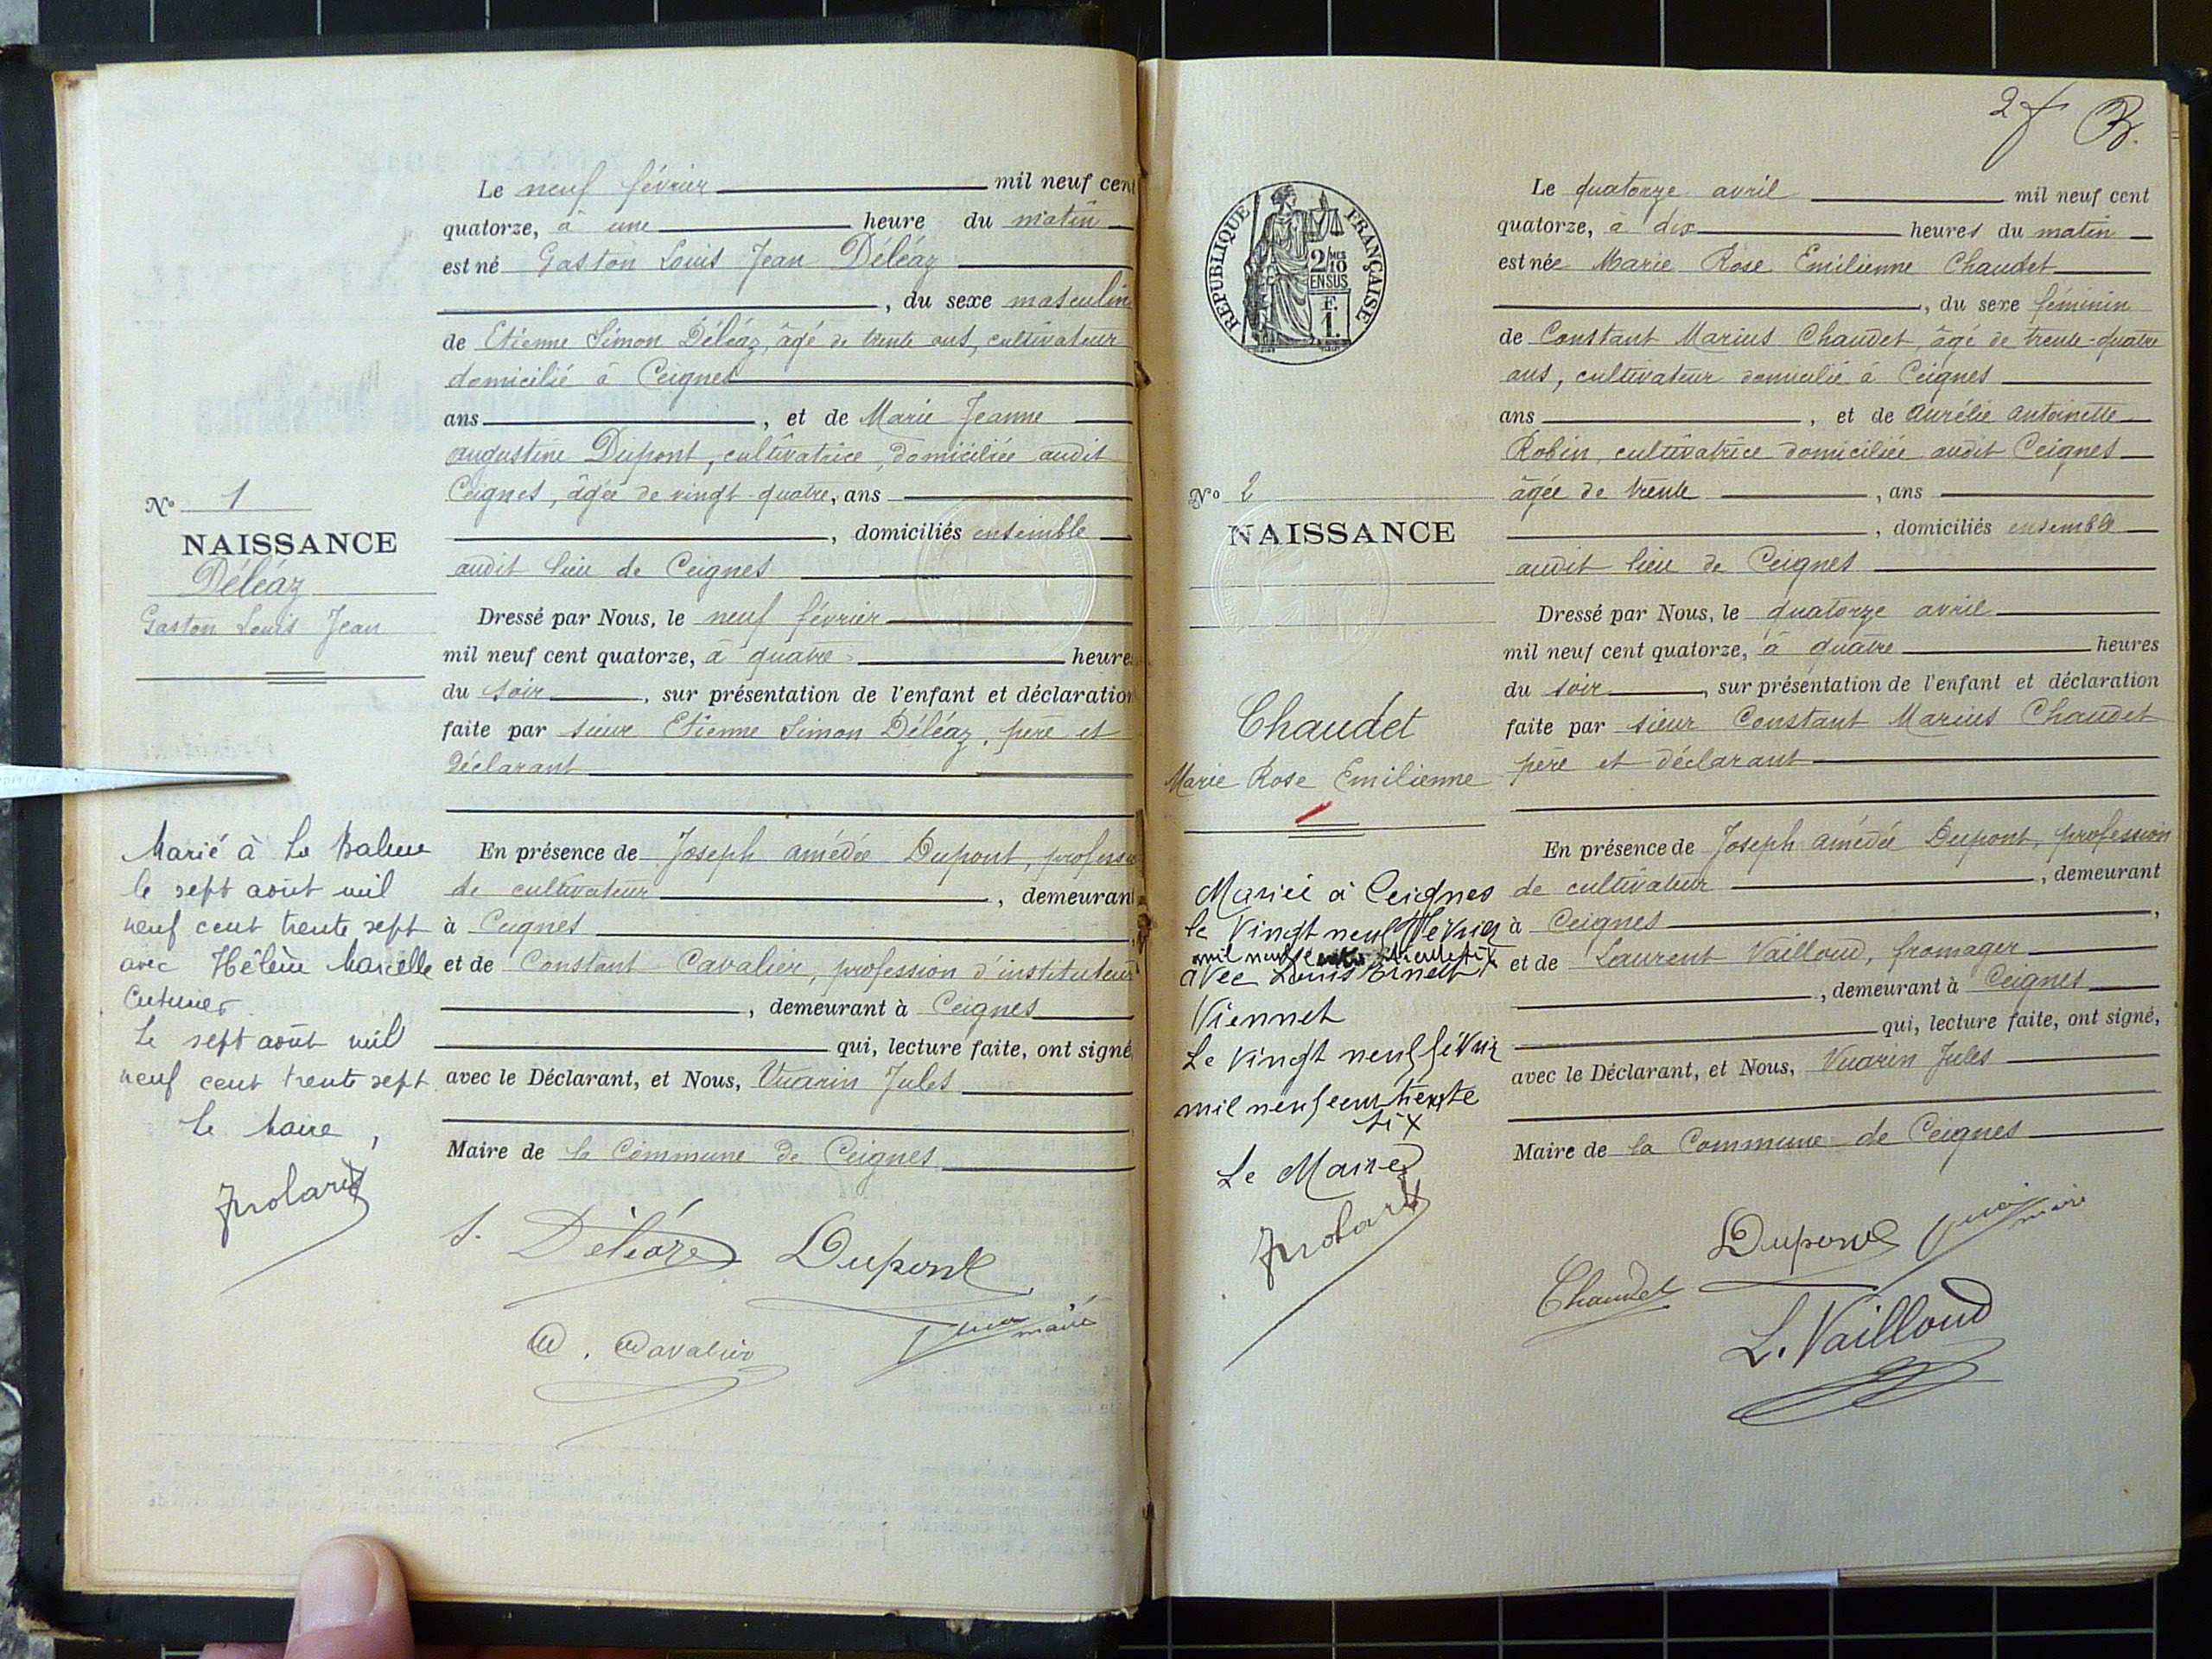 Le neuf février mil neuf cent
quatorze, à une heure du matin
est né Gaston Louis Jean Déléaz
, du sexe masculin
de Etienne Simon Déléaz, âgé de trente ans, cultivateur
domicilié à Ceignes
ans , et de Marie Jeanne
Augustine Dupont, cultivatrice, domiciliée audit
Ceignes, âgée de vingt-quatre, ans
, domiciliés ensemble
audit lieu de Ceignes
Dressé par Nous, le neuf février
mil neuf cent quatorze, à quatre heures
du soir , sur présentation de l'enfant et déclaration
faite par sieur Etienne Simon Déléaz, père et
déclarant
En présence de Joseph Amédée Dupont, profession
de cultivateur , demeurant
à Ceignes
et de Constant Cavalier, profession d'instituteur
, demeurant à Ceignes
qui, lecture faite, ont signé
avec le Déclarant, et Nous, Vuarin Jules
Maire de la Commune de Ceignes
S. Déléaz Dupont
C. Cavalier
maire
No 1
NAISSANCE
Déléaz
Gaston Louis Jean
Marié à La Balme
le sept août mil
neuf cent trente sept
avec Hélène Marcelle
Le sept août mil
neuf cent trente sept
Le Maire,
2f B.
RÉPUBLIQUE FRANÇAISE
2/10
EN SUS
F.
1.
No 2
NAISSANCE
Chaudet
Marie Rose Emilienne
Mariée à Ceignes
le vingt neuf février
mil neuf cent trente six
avec Louis Ernest
Viennet
Le vingt neuf février
mil neuf cent trente
six
Le Maire
Le quatorze avril mil neuf cent
quatorze, à dix heures du matin
est née Marie Rose Emilienne Chaudet
, du sexe féminin
de Constant Marius Chaudet, âgé de trente-quatre
ans, cultivateur domicilié à Ceignes
ans , et de Aurélie Antoinette
Robin, cultivatrice domiciliée audit Ceignes
âgée de trente , ans
, domiciliés ensemble
audit lieu de Ceignes
Dressé par Nous, le quatorze avril
mil neuf cent quatorze, à quatre heures
du soir , sur présentation de l'enfant et déclaration
faite par sieur Constant Marius Chaudet
père et déclarant
En présence de Joseph Amédée Dupont, profession
de cultivateur , demeurant
à Ceignes ,
et de Laurent Vailloud, fromager
, demeurant à Ceignes
qui, lecture faite, ont signé,
avec le Déclarant, et Nous, Vuarin Jules
Maire de la Commune de Ceignes
Dupont maire
Chaudet
L. Vailloud